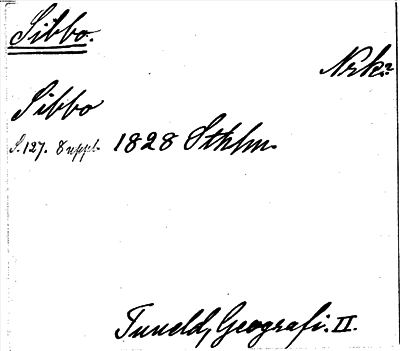 Sibbo.
Nrk?
Sibbo
S. 127. Suppl. 1828 Sthlm.
Tuneld, Geografi. II.